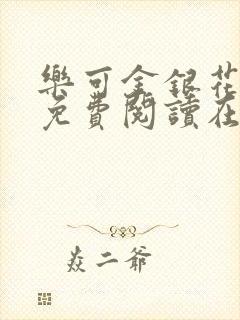 樂可金銀花
免費閱讀在
焱二爺